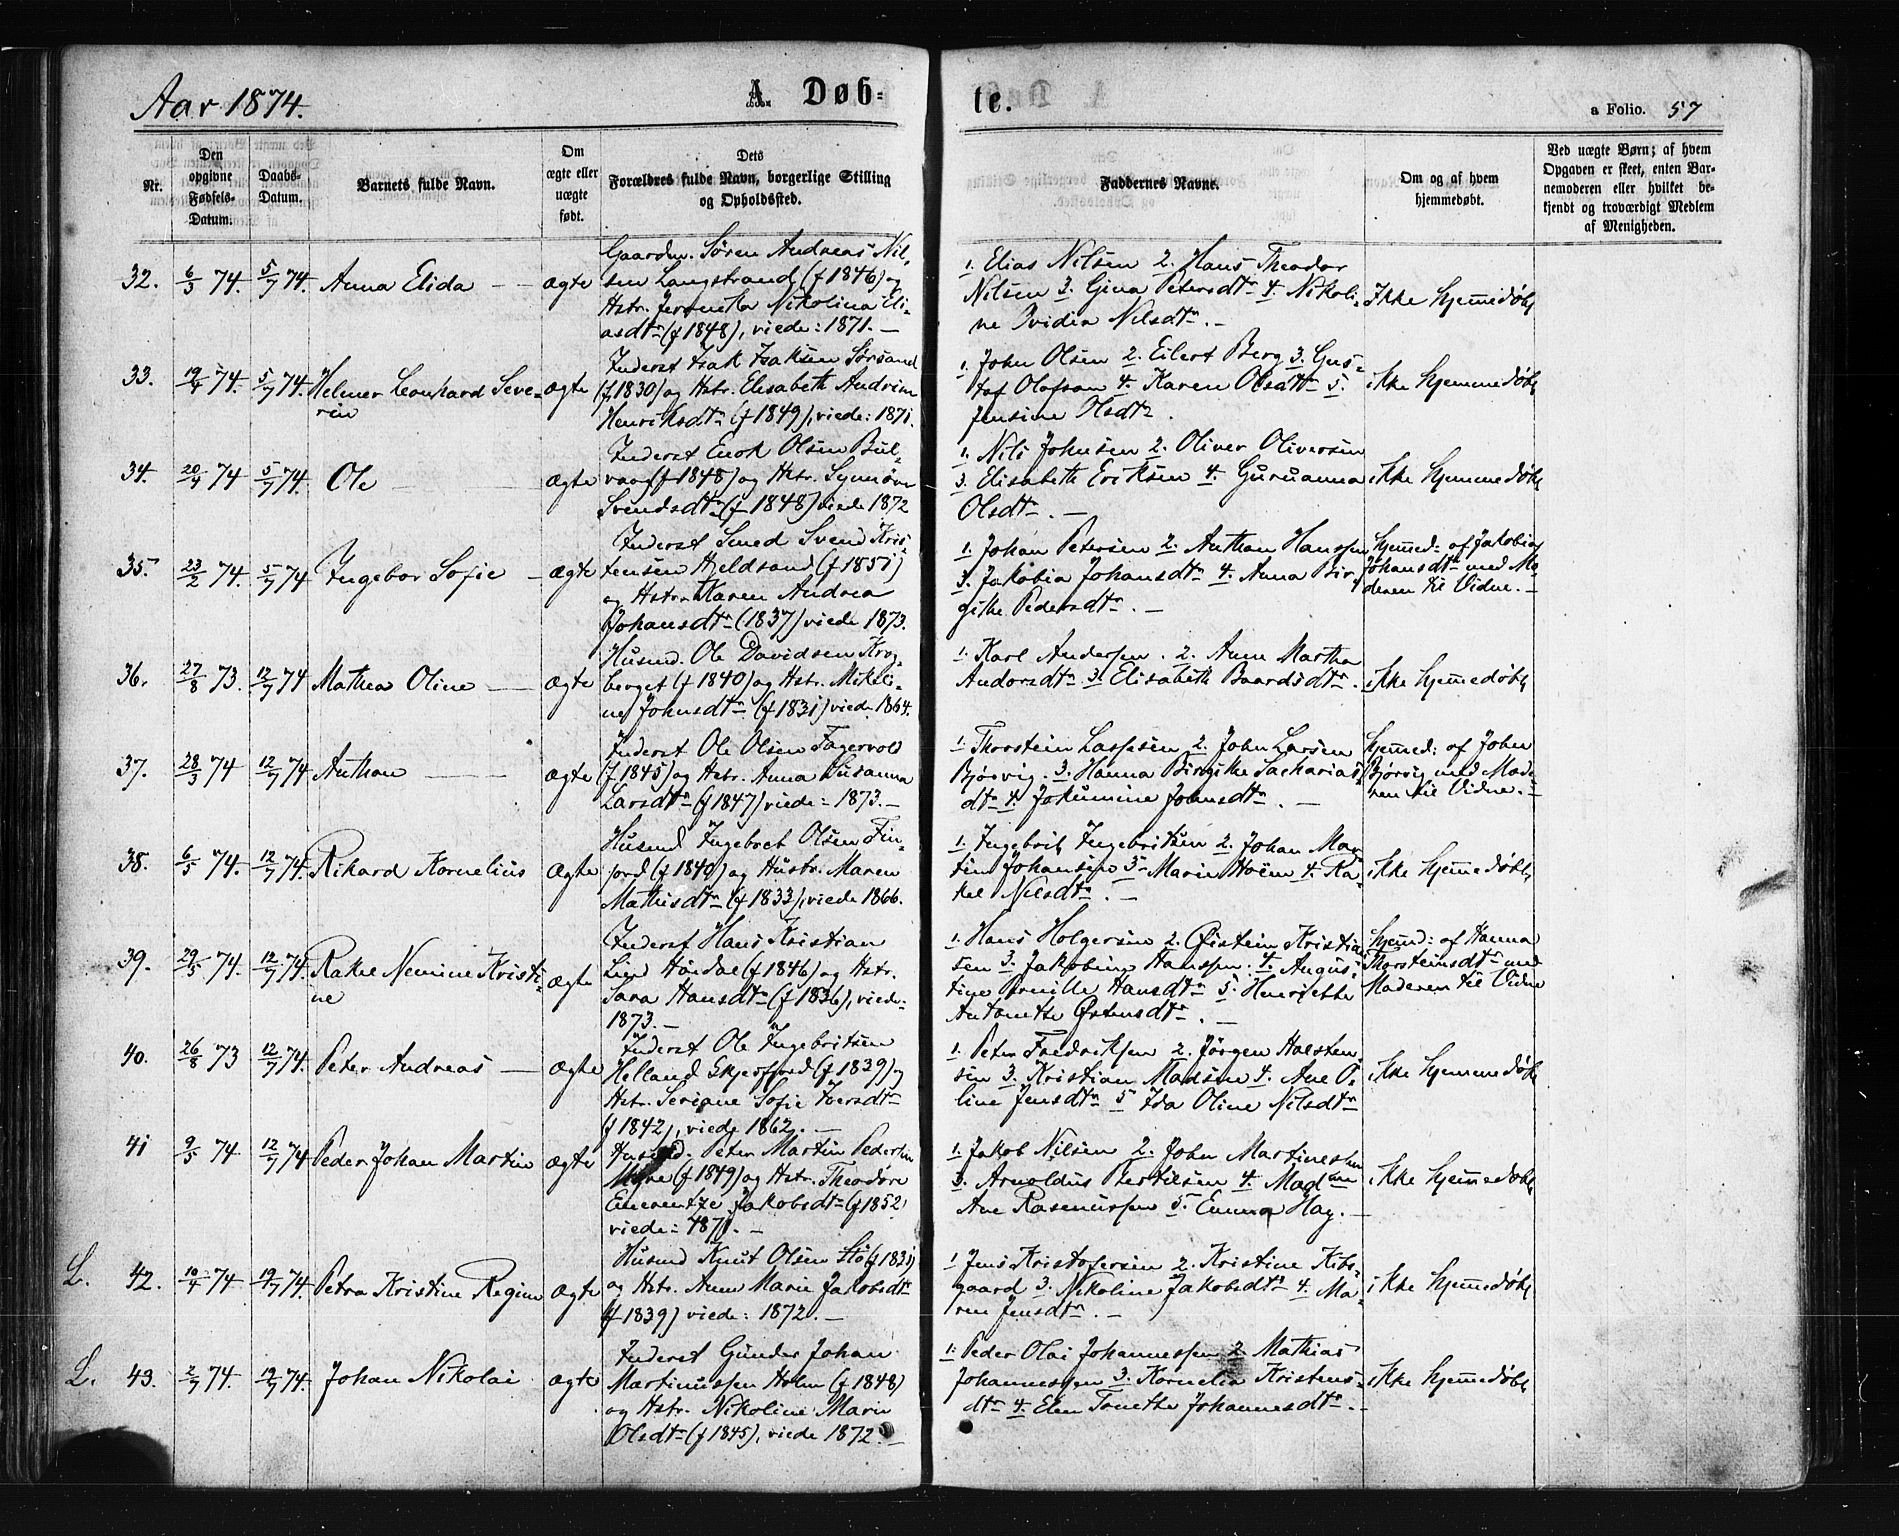 Aar 1874.
A Døb-
te.
a Folio. 57
Nr.
Den opgivne Fødsels-Datum.
Daabs-Datum.
Barnets fulde Navn.
Om ægte eller uægte født.
Dets Forældres fulde Navn, borgerlige Stilling og Opholdssted.
Faddernes Navne.
Om og af hvem hjemmedøbt.
Ved uægte Børn; af hvem Opgaven er skeet, enten Barnemoderen eller hvilket bekjendt og troværdigt Medlem af Menigheden.
32. 6/3 74. 5/7 74. Anna Elida — ægte
Gaardm. Søren Andreas Nil-
sen Langstrand (f 1846) og
Hstr. Nikolina Eli-
asdtr (f 1848), viede: 1871. —
1. Elias Nilsen 2. Hans Theodor
Nilsen 3. Gina Petersdtr 4. Nikoli-
ne Ovidia Nilsdtr. —
Ikke hjemmedøbt
33. 19/4 74. 5/7 74. Helmer Leonhard Seve-
rin
ægte
Inderst Isak Isaksen Sørsand
(f 1830) og Hstr. Elisabeth Andrine
Henriksdtr (f 1849), viede: 1871.
1. John Olsen 2. Eilert Berg 3. Gus-
taf Olafson 4. Karen Olsdtr 5.
Jensine Olsdtr.
ikke hjemmedøbt
34. 20/4 74 5/7 74. Ole — ægte
Inderst Enok Olsen Bul-
vaag (f 1848) og Hstr. Synnøve
Svendsdtr (f 1848) viede 1872
1. Nils Johnsen 2. Oliver Oliversen
3. Elisabeth Eriksen 4. Guruanna
Olsdtr. —
ikke hjemmedøbt
35. 23/2 74. 5/7 74 Ingebor Sofie — ægte
Inderst Smed Svend Kris-
tensen Hjeldsand (f 1851)
og Hstr. Karen Andrea
Johansdtr (1837) viede 1873.
1. Johan Petersen 2. Anthon Hanssen
3. Jakobia Johansdtr 4. Anna Bir-
githe Pedersdtr. —
hjemmed: af Jakobia
Johansdtr med Mo-
deren til Vidne. —
36. 27/8 73. 12/7 74 Mathea Oline — ægte
Husmd. Ole Davidsen Krog-
berget (f 1840) og Hstr. Mikeli-
ne Johnsdtr (f 1831) viede 1864.
1. Karl Andersen. 2. Anne Martha
Andorsdtr 3. Elisabeth Baardsdtr.
ikke hjemmedøbt
37. 28/3 74 12/7 74 Anthon — ægte
Inderst Ole Olsen Fagervold
(f 1845) og Hstr. Anna Susanna
Larsdtr (f 1847) viede: 1873. —
1. Thorstein Lassesen 2. John Larsen
Bjørvig. 3. Hanna Birgithe Sacharias-
dtr 4. Jakumine Johnsdtr. —
hjemmed: af John
Bjørvig med Mode-
ren til Vidne. —
38. 6/5 74. 12/7 74. Rikard Kornelius ægte
Husmd Ingebret Olsen Fin-
jord (f 1840) og Hustr. Maren
Mathisdtr (f 1833), viede 1866.
1. Ingebrit Ingebritsen 2. Johan Mar-
tin Johansen 3. Marie Hveem 4. Ra-
kel Nilsdtr. —
ikke hjemmedøbt
39. 29/5 74. 12/7 74. Rakel Nemine Kristi-
ne
ægte
Inderst Hans Kristian
Lind Hondal (f 1846) og Hstr.
Sara Hansdtr (f 1836), viede:
1873. —
1. Hans Holgersen 2. Øistein Kristian-
sen 3. Jakobine Hanssen. 4. Augus-
tine Pernille Hansdtr 5. Henriette
Antonette Østensdtr. —
hjemmd: af Hanna
Thorsteinsdtr med
Moderen til Vidne
40. 26/8 73 12/7 74. Peter Andreas — ægte
Inderst Ole Ingebritsen
Helland Skjerfjord (f 1839) og
Hstr. Seriane Sofie Iversdtr
(f 1842), viede 1862. —
1. Peter Fredriksen 2. Jørgen Halsten-
sen 3. Kristian Madsen 4. Ane O-
line Jensdtr 5 Ida Oline Nilsdtr
ikke hjemmedøbt
41 9/5 74 12/7 74 Peder Johan Martin ægte
Peter Martin Pedersen
Myre (f 1849) og Hstr. Theodore
Emerentze Jakobsdtr (f 1852)
viede: 1871. —
1. Jakob Nilsen 2. John Martinessen
3. Arnoldus Bertilsen 4. Madam
Ane Rasmussen 5. Emma Hag. —
ikke hjemmedøbt
L. 42. 10/4 74 19/7 74. Petra Kristine Regine ægte
Husmd Knut Olsen Stø (f 1831)
og Hstr. Anne Marie Jakobsdtr
(f 1839) viede: 1872. —
1 Jens Kristofersen 2. Kristine Kibs-
gaard 3. Nikoline Jakobsdtr 4. Ma-
ren Jensdtr. —
ikke hjemmedøbt
L. 43. 2/7 74. 19/7 74. Johan Nikolai. ægte
Inderst Gunder Johan
Martinussen Holm (f 1848)
og Hstr. Nikoline Marie
Olsdtr (f 1845), viede 1872. —
1. Peder Olai Johannessen 2 Mathias
Johannessen 3. Kornelia Kristens-
dtr 4. Elen Tonette Johannesdtr. —
ikke hjemmedøbt